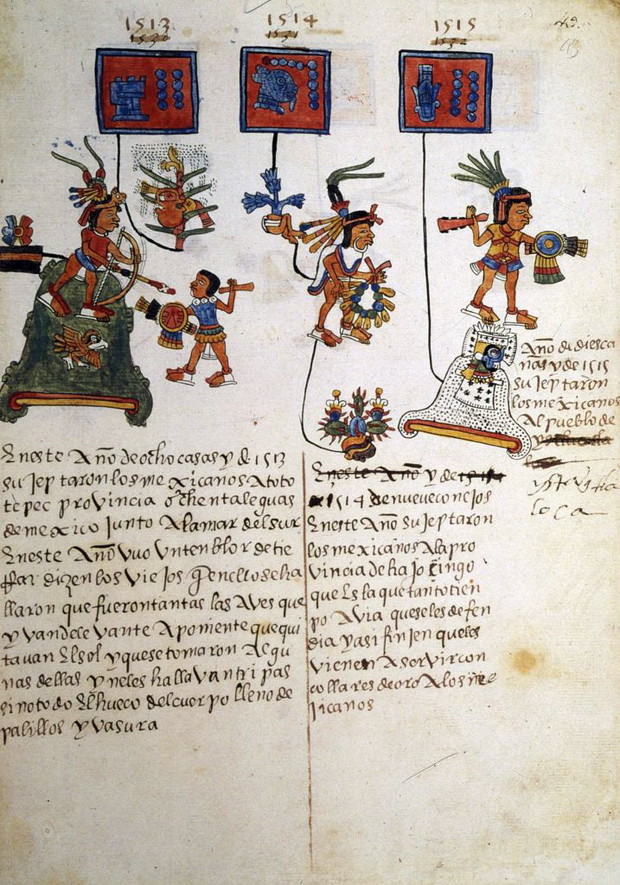 1513
1514
1515
Año d diesca
ñas y de 1515
sujeptaron
los mexicanos
Al pueblo de
En este Año de ocho casas y d 1513
sujeptaron los mexicanos A toto
tepec provincia ochenta leguas
de mexico junto A la mar del sur
En este Año vuo vn tenblor de tie
rra y dizen los viejos
llaron que fueron tantas las Aves que
y van de levante A poniente que qui
tavan El sol y que se tomaron Algu
nas dellas y no les hallavan tripas
sino todo El hueco del cuerpo lleno de
palillos y vasura
En este Año y de
1514 de nueve conejos
En este Año sujeptaron
los mexicanos A la pro
vincia de
que Es la que tanto tien
po Avia que se les defen
dia y asi finjen que les
vienen A servir con
collares de oro A los me
xicanos